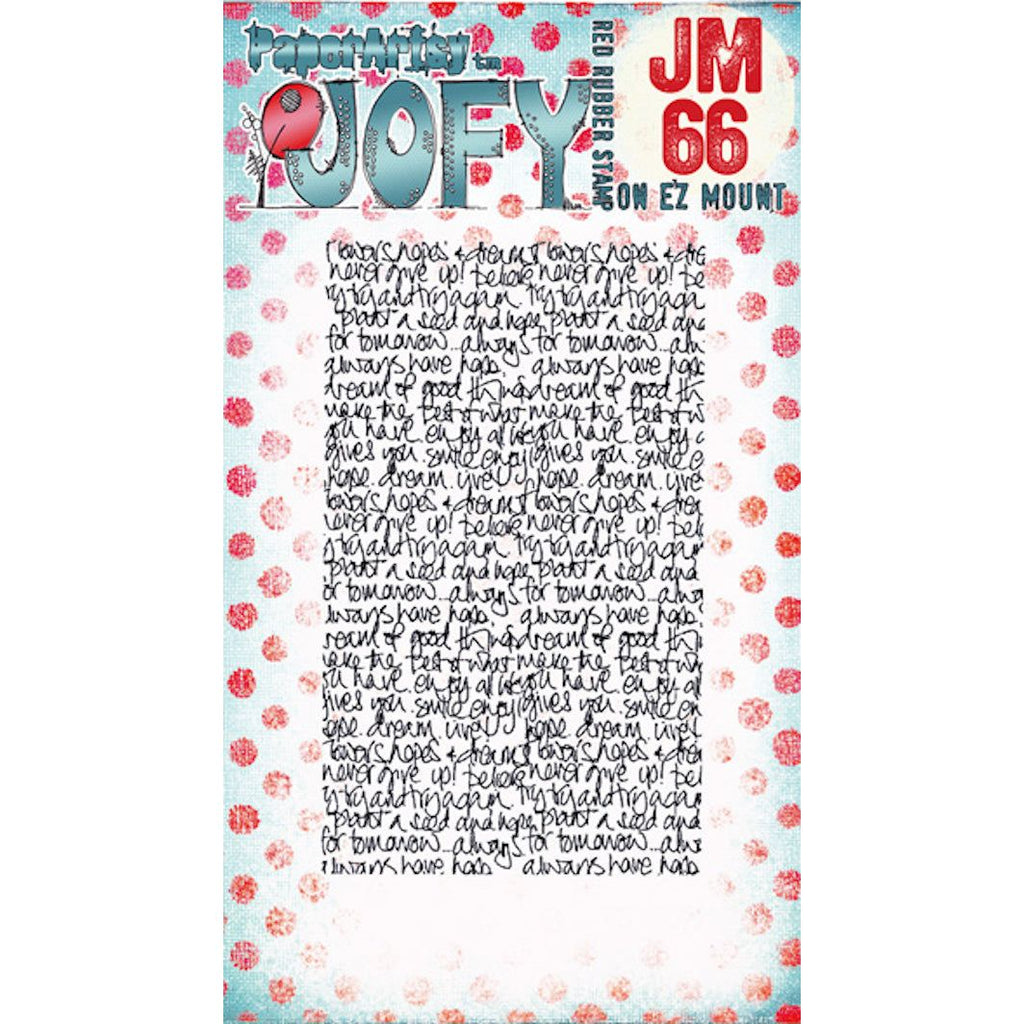 PaperArtsy tm
JOFY
RED RUBBER STAMP
JM
66
ON EZ MOUNT
flowers, hopes & dreams flowers, hopes & dre
never give up! believe never give up! be
ry try and try again. Try try and try aga
plant a seed and hope plant a seed and
for tomorrow...always for tomorrow...alw
always have hope. always have hope
dream of good things dream of good th
make the best of what make the best of w
you have. enjoy all life you have. enjoy
gives you. smile enjoy gives you. smile e
hope. dream. live hope. dream. live
flowers, hopes & dreams flowers, hopes & drea
never give up! believe never give up! bel
y try and try again. Try try and try again
plant a seed and hope plant a seed and
or tomorrow...always for tomorrow...alwa
always have hope. always have hope
ream of good things dream of good thi
make the best of what make the best of wh
ou have. enjoy all life you have. enjoy all
gives you. smile enjoy gives you. smile en
ope. dream. live hope. dream. live
flowers, hopes & dreams flowers, hopes & drea
never give up! believe never give up! bel
y try and try again. Try try and try again
plant a seed and hope plant a seed and
for tomorrow...always for tomorrow...alwa
always have hope. always have hope